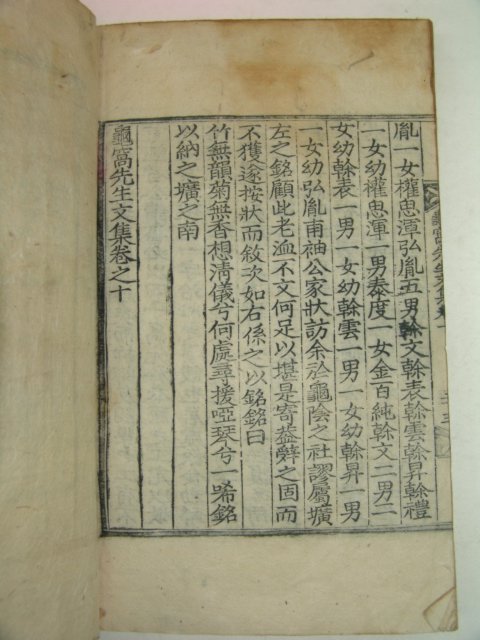 胤一女權忠潭弘胤五男榦文榦表榦雲榦昇榦禮
一女幼權忠渾一男泰度一女金百純榦文二男二
女幼榦表一男一女幼榦雲一男一女幼榦昇一男
一女幼弘胤甫袖公家狀訪余於龜陰之社謬屬壙
左之銘顧此老洫不文何足以堪是寄益辭之固而
不獲遂按狀而敘次如右係之以銘銘曰
竹無韻菊無香想淸儀兮何處尋援啞琴兮一唏銘
以納之壙之南
龜窩先生文集卷之十